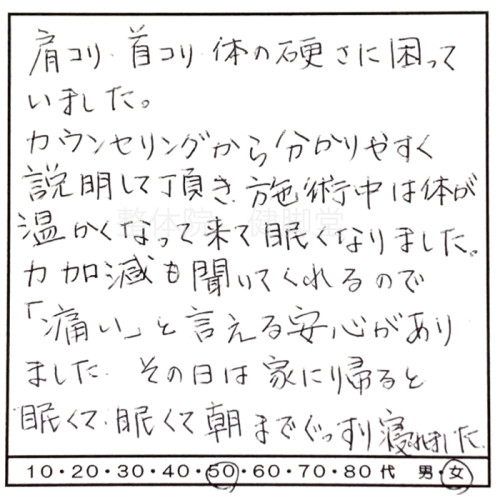 肩コリ・首コリ・体の硬さに困って
いました。
カウンセリングから分かりやすく
説明して頂き、施術中は体が
温かくなって来て眠くなりました。
力加減も聞いてくれるので
「痛い」と言える安心があり
ました。その日は家に帰ると
眠くて、眠くて朝までぐっすり寝れました。
10・20・30・40・50・60・70・80代 男・女
整体院 健脚堂